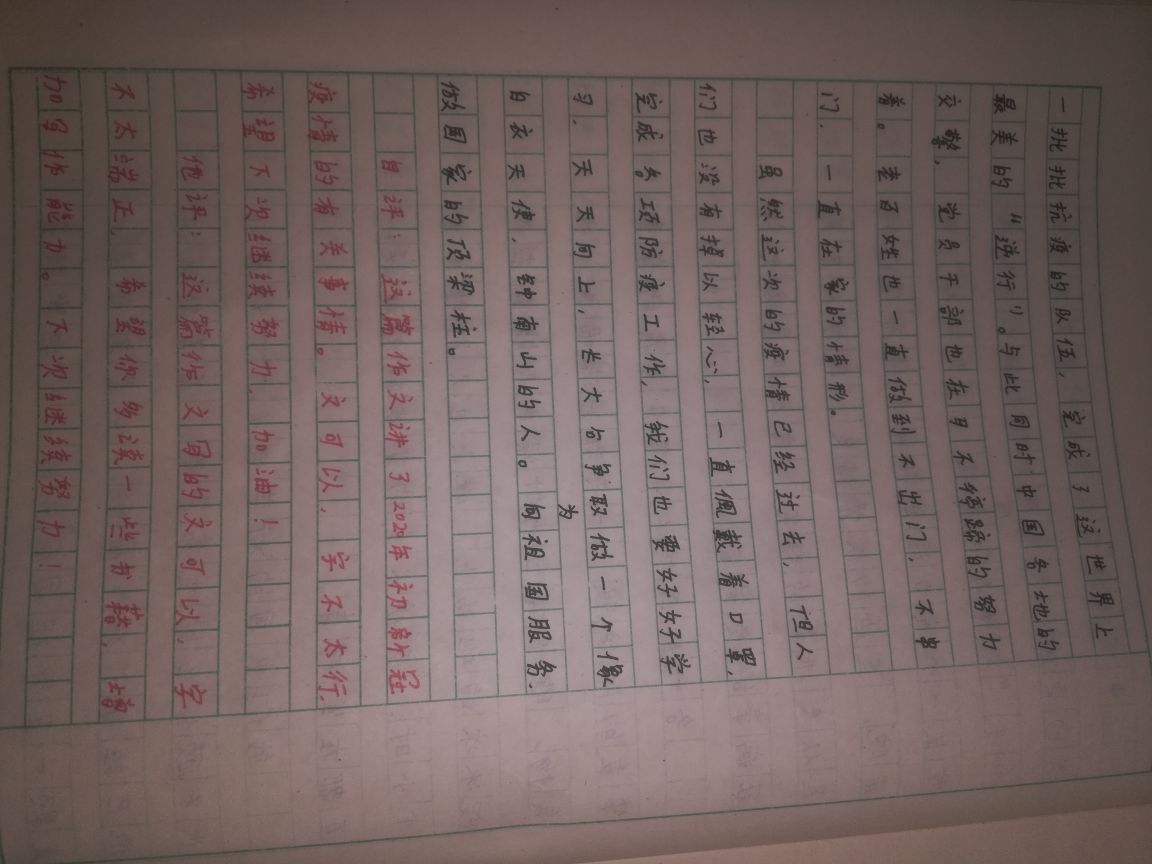 一批批抗疫的队伍，完成了这世界上
最美的“逆行”。与此同时中国各地的
交警，党员干部也在日不停蹄的努力
着。老百姓也一直做到不出门，不串
门，一直在家的情形。
虽然这次的疫情已经过去，但人
们也没有掉以轻心，一直佩戴着口罩，
完成各项防疫工作，我们也要好好学
习，天天向上，长大后争取做一个像
白衣天使，钟南山的人。向祖国服务，
为
做国家的顶梁柱。
自评：这篇作文讲了2020年初新冠
疫情的有关事情。文可以，字不太行，
希望下次继续努力，加油！
他评：这篇作文写的文可以，字
不太端正，希望你多读一些书籍，增
加写作能力。下次继续努力！